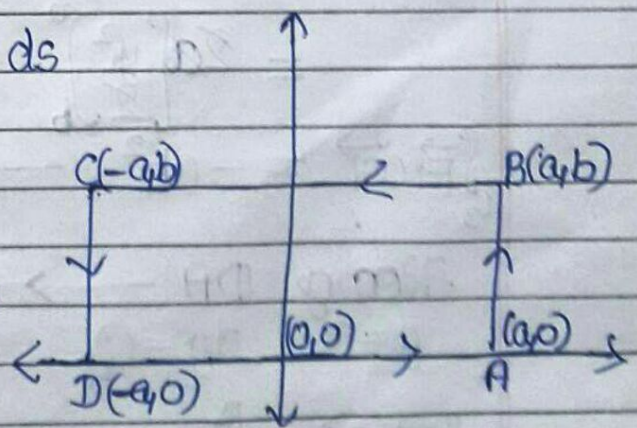 ds
C(-a,b) B(a,b)
(0,0) (a,0)
D(-a,0) A